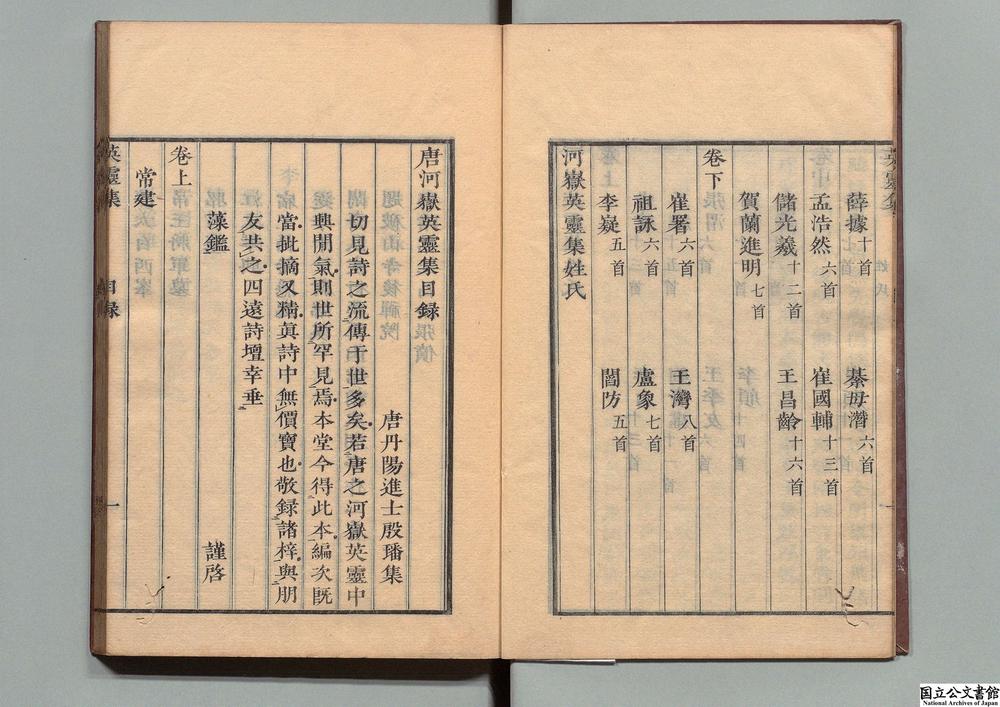 薛據十首 綦毋潛六首
孟浩然六首 崔國輔十三首
儲光羲十二首 王昌齡十六首
賀蘭進明七首
卷下
崔署六首 王灣八首
祖詠六首 盧象七首
李嶷五首 閻防五首
河嶽英靈集姓氏
唐河嶽英靈集目録
唐丹陽進士殷璠集
切見詩之流傳于世多矣若唐之河嶽英靈中
興閒氣則世所罕見焉本堂今得此本編次既
當批摘又精真詩中無價寶也敬録諸梓與朋
友共之四遠詩壇幸垂
藻鑑 謹啓
卷上
常建
英靈集 目録 一
国立公文書館
National Archives of Japan